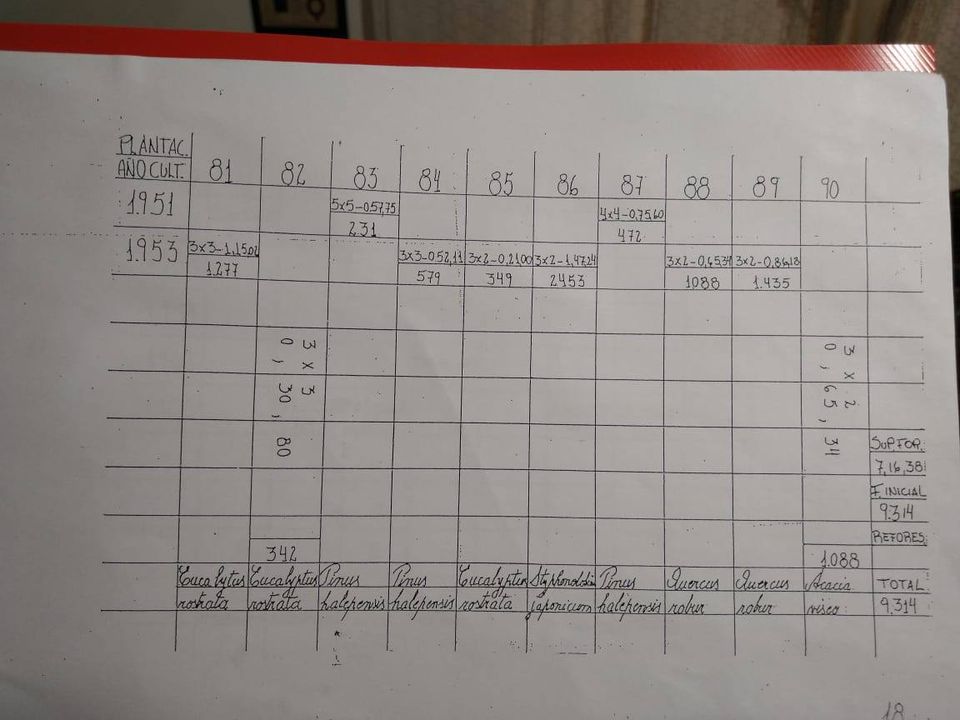 PLANTAC.
AÑO CULT. 81 82 83 84 85 86 87 88 89 90
1.951 5x5-0,57,75 4x4-0,75,60
231 472
1.953 3x3-1,15,02 3x3-0,52,11 3x2-0,21,00 3x2-1,47,24 3x2-0,65,34 3x2-0,86,18
1.277 579 349 2453 1088 1.435
3 x 3
0, 30, 80
3 x 2
0, 65, 34
SUP.FOR.
7,16,38
F. INICIAL
9.314
REFORES:
342 1.088
Eucalytus Eucalyptus Pinus Pinus Eucalyptus Pinus Quercus Quercus Acacia TOTAL
rostrata rostrata halepensis halepensis rostrata japonicum halepensis robur robur visco 9.314
18